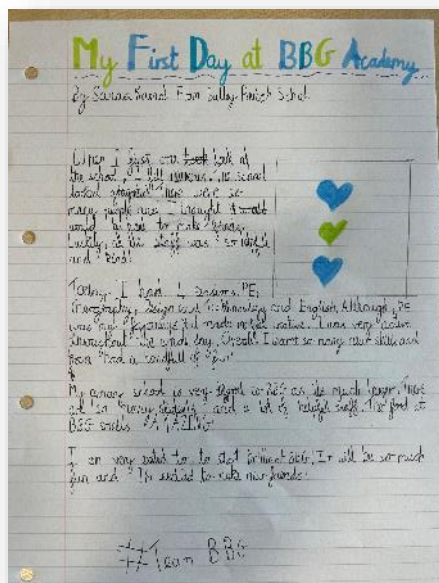 My First Day at BBG Academy
By From Birkby School
When I first look at
the school, I felt nervous. The school
looked gigantic There were so
many people and I thought it
would be hard to make friends.
Luckily, all the staff was so
and kind!
Today, I had 4 lessons: PE,
Geography, design and Technology and English. Although, PE
was my favourite, it made me feel active. I was very
throughout the whole day. Overall I want so many new skills and
have had a handful of fun!
My primary school is very different to BBG as its much bigger. There
are so many students and a lot of helpful staff. The food at
BBG smells AMAZING
I am very excited to to start brilliant BBG. It will be so much
fun and I'm excited to make new friends.
#Team BBG